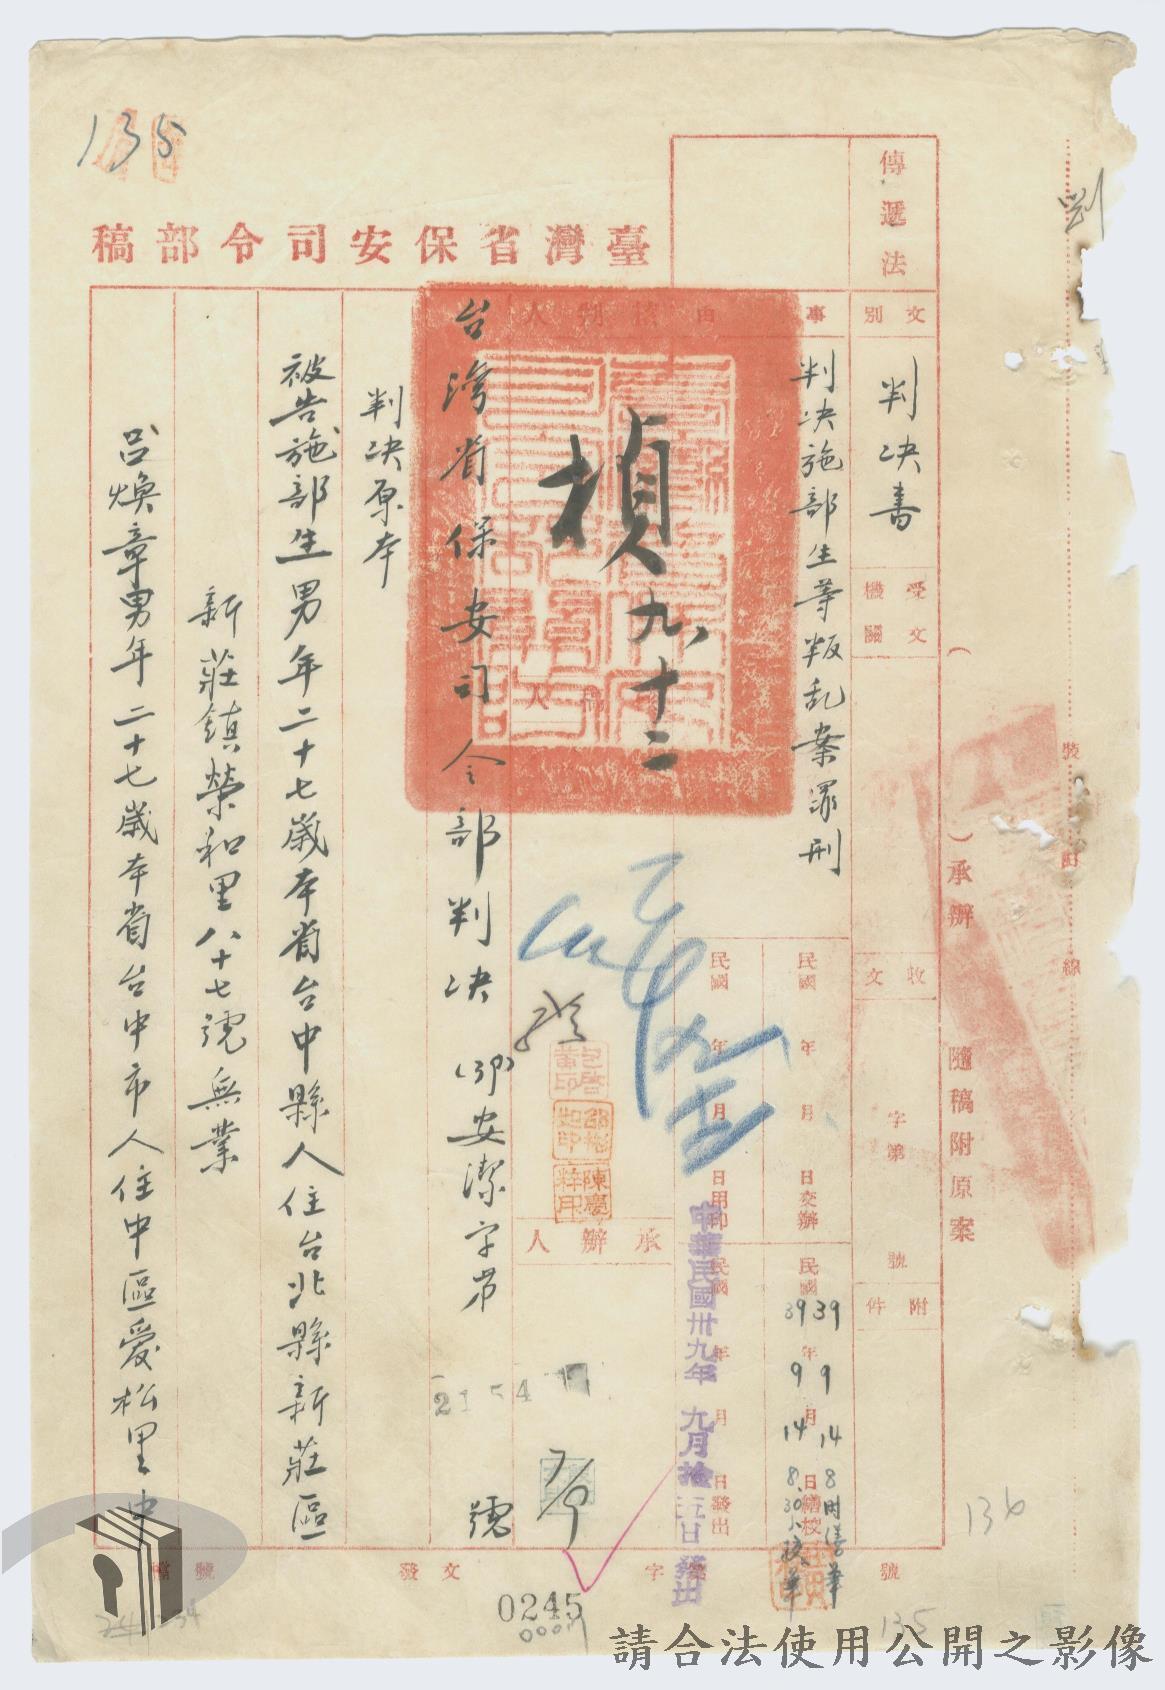 135
臺灣省保安司令部稿
傳遞法
文別
判决書
受文機關
事由
判决施部生等叛乱案罪刑
核判人
楨九、十二
收文
字第
號
附件
民國39年9月14日交辦
民國39年9月14日繕校
8時繕畢
8.30分校畢
民國 年 月 日用印
民國 年 月 日發出
中華民國卅九年 九月拾五日 發出
承辦人
台湾省保安司令部判决(39)安潔字苐 號
2154
判决原本
被告施部生男年二十七歲本省台中縣人住台北縣新莊區
新莊鎮榮和里八十七號無業
呂煥章男年二十七歲本省台中市人住中區愛松里中
(    )承辦 隨稿附原案
裝訂線
檔號
發文 字 號
0245
136
135
請合法使用公開之影像